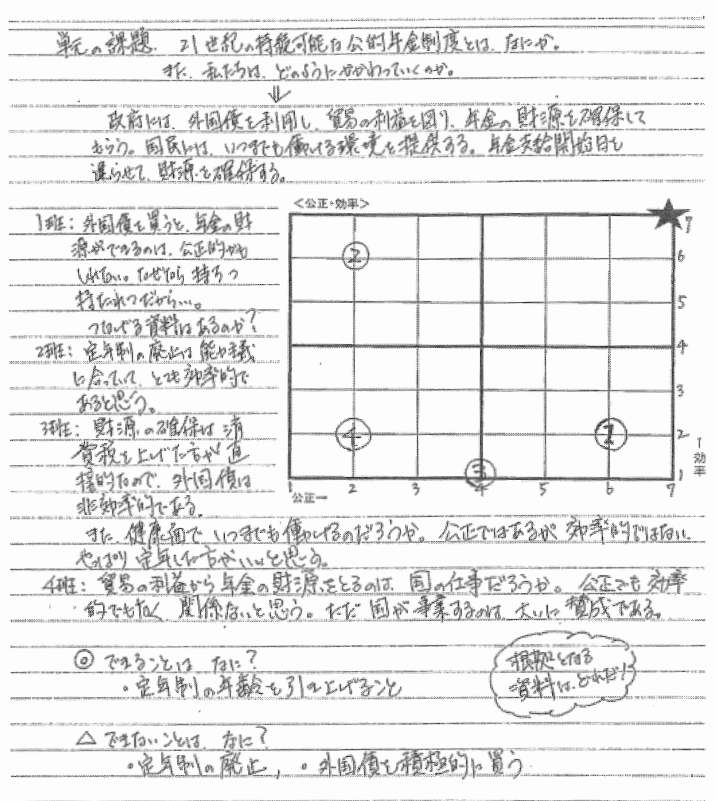 単元の課題. 21世紀の持続可能な公的年金制度とは、なにか。
また、私たちは、どのようにかかわっていくのか。
⇓
政府には、外国債を利用し、貿易の利益を図り、年金の財源を確保して
もらう。国民には、いつまでも働ける環境を提供する。年金支給開始日を
遅らせて、財源を確保する。
1班：外国債を買うと、年金の財
源ができるのは、公正的かも
しれない。なぜなら 持ちつ
持たれつだから…。
つなげる資料はあるのか？
2班：定年制の廃止は能力主義
に合っていて、とても効率的で
あると思う。
3班：財源の確保は 消
費税を上げた方が 直
接的なので、外国債は
非効率的である。
また、健康面で いつまでも働けるのだろうか。公正ではあるが 効率的ではない。
やっぱり 定年した方がいいと思う。
4班：貿易の利益から 年金の財源をとるのは、国の仕事だろうか。公正でも 効率
的でもなく 関係ないと思う。ただ 国が事業するのは、大いに賛成である。
＜公正・効率＞
★
7
② 6
5
4
3
④ ① 2
③ 1
↑効率
1 2 3 4 5 6 7
公正→
◎ できることは なに？
・定年制の年齢を引き上げること
根拠となる
資料は、どれだ!
△ できないことは なに？
・定年制の廃止, ・外国債を積極的に買う